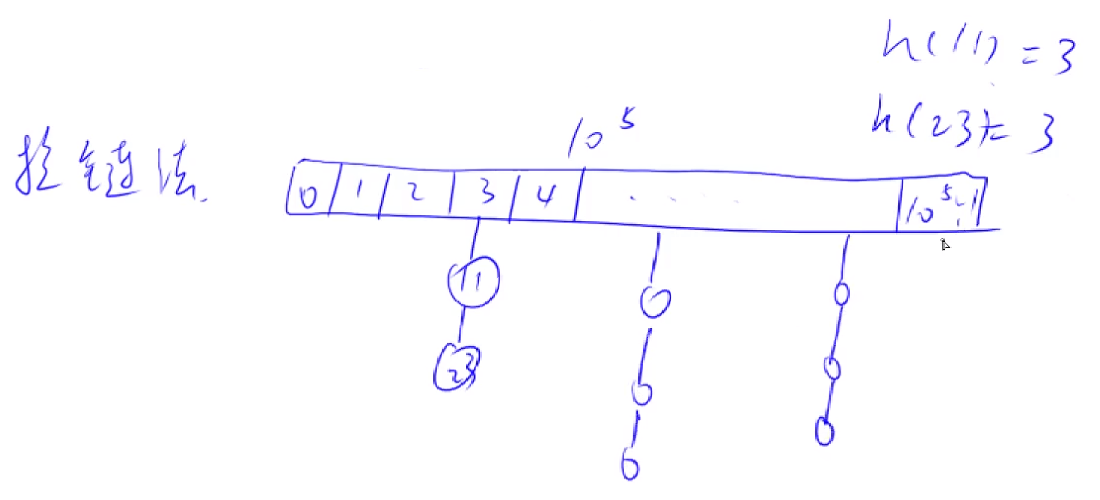 h(11) = 3
h(23) = 3
拉链法
10^5
0 1 2 3 4 ..... 10^5-1
11
23